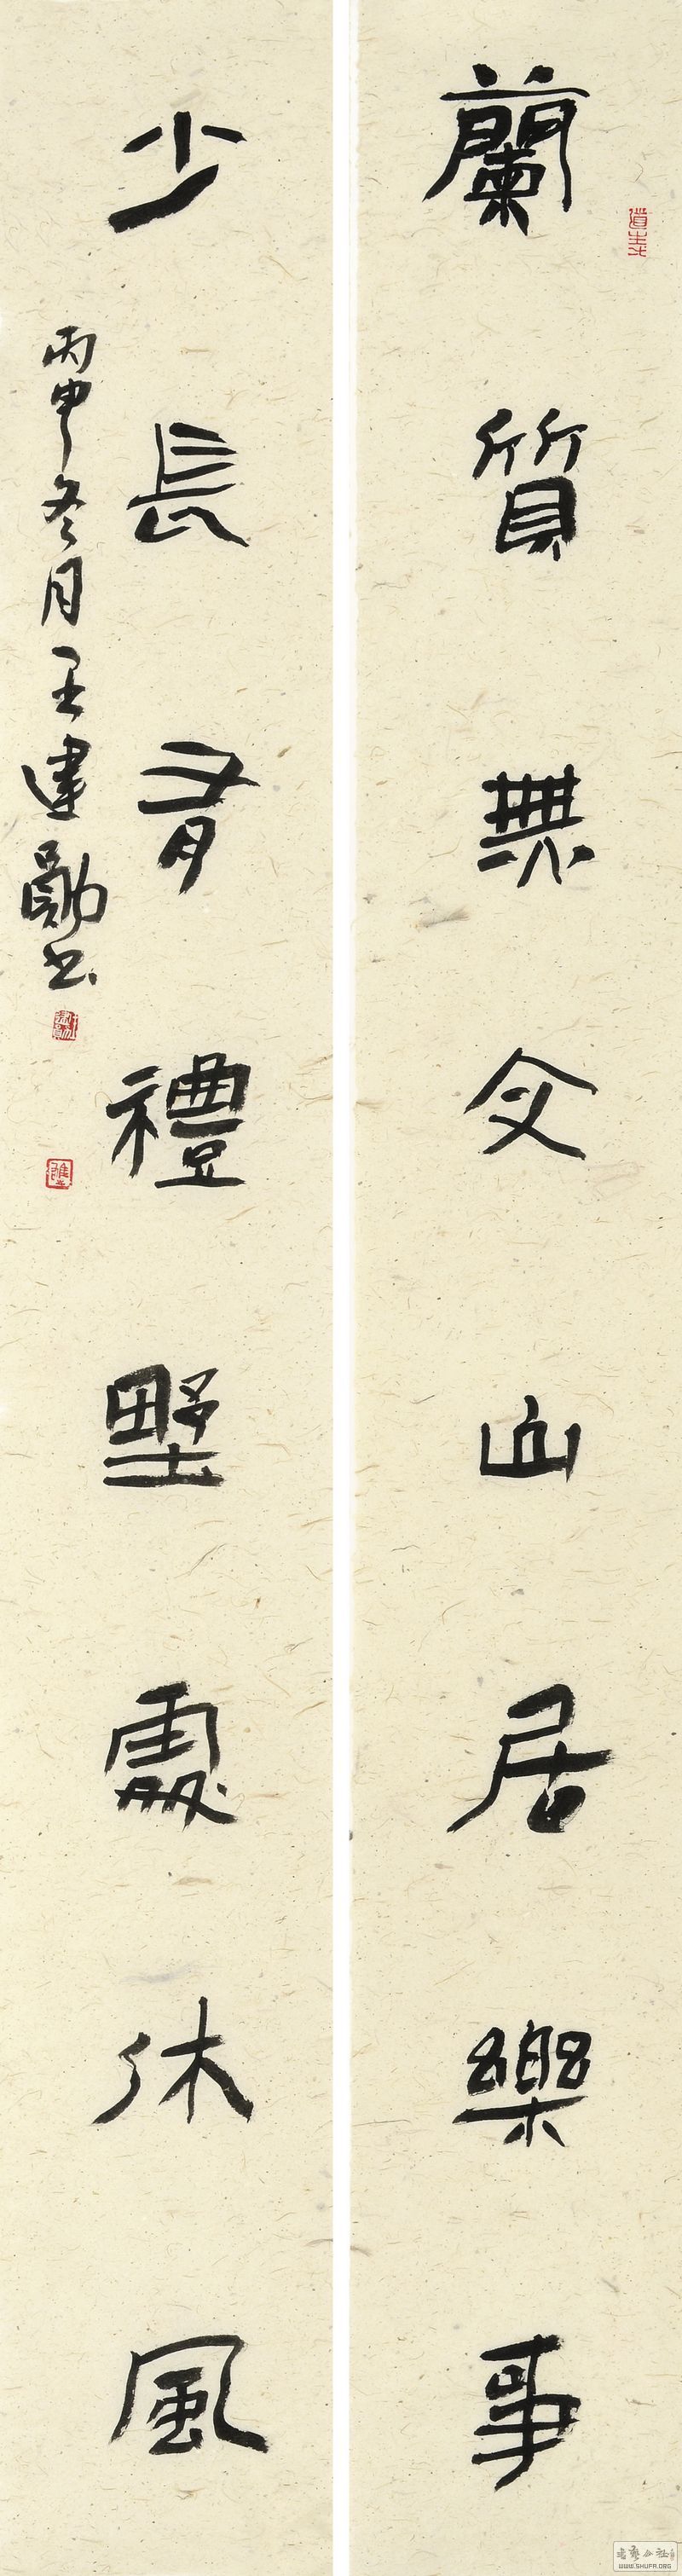 蘭質無文山居樂事
少長有禮野處休風
丙申冬月王建勛书
书艺公社
WWW.SHUFA.ORG